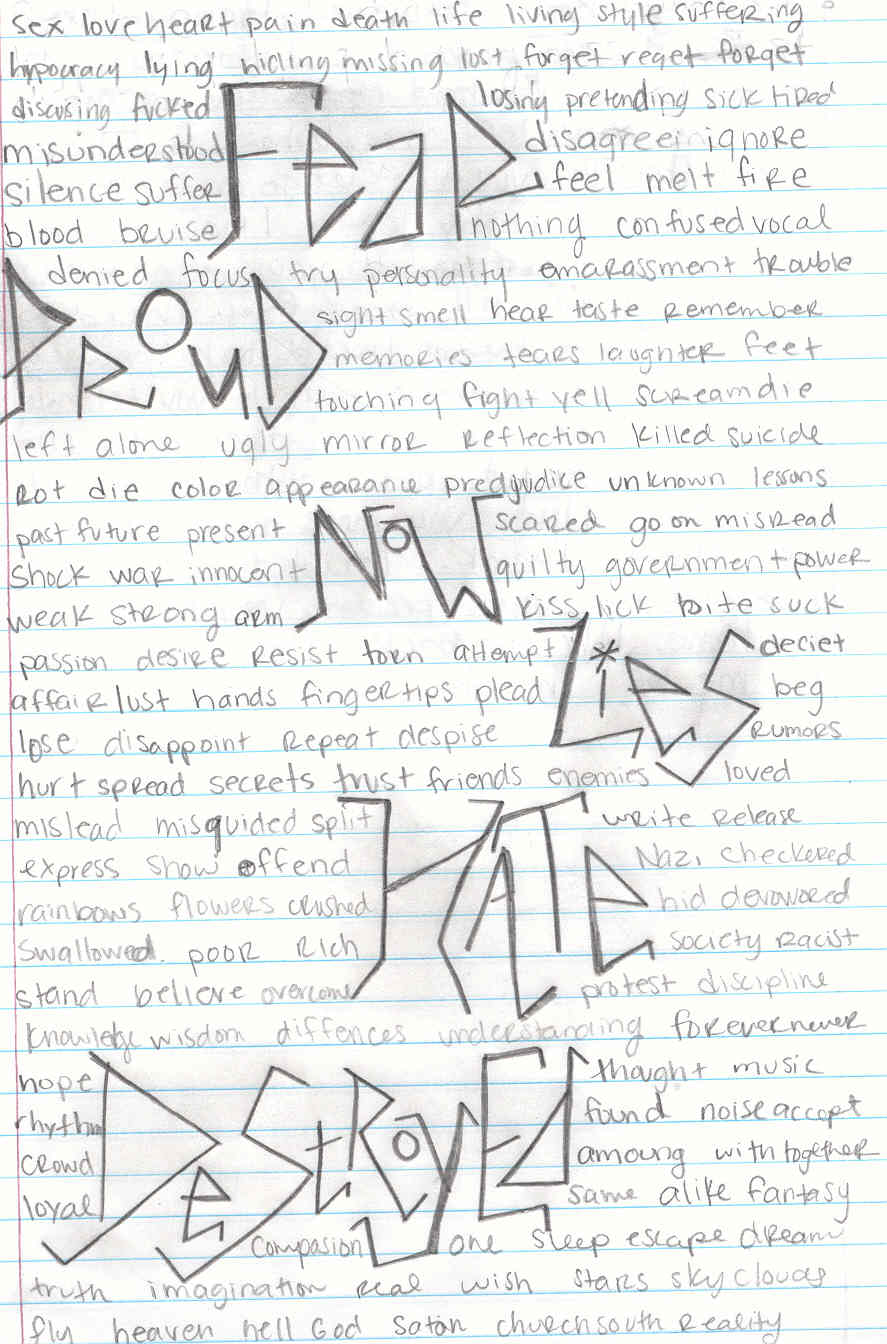 sex love heart pain death life living style suffering
hypocracy lying hiding missing lost forget reget forget
discusing fucked losing pretending sick tired
misunderstood Fear disagree ignore
silence suffer feel melt fire
blood bruise nothing confused vocal
denied focus try personality emarassment trouble
Proud sight smell hear taste remember
memories tears laughter feet
touching fight yell scream die
left alone ugly mirror reflection killed suicide
rot die color appearance predjudice unknown lessons
past future present Now scared go on misread
shock war innocent guilty government power
weak strong arm kiss lick bite suck
passion desire resist torn attempt Lies deciet
affair lust hands fingertips plead beg
lose disappoint repeat despise rumors
hurt spread secrets trust friends enemies loved
mislead misguided split Hate write release
express show offend Nazi checkered
rainbows flowers crushed hid devowored
swallowed. poor rich society racist
stand believe overcome protest discipline
knowledge wisdom diffences understanding forever never
hope Destroyed thought music
rhythm found noise accept
crowd amoung with together
loyal same alike fantasy
compasion one sleep escape dream
truth imagination real wish stars sky clouds
fly heaven hell God satan church south reality